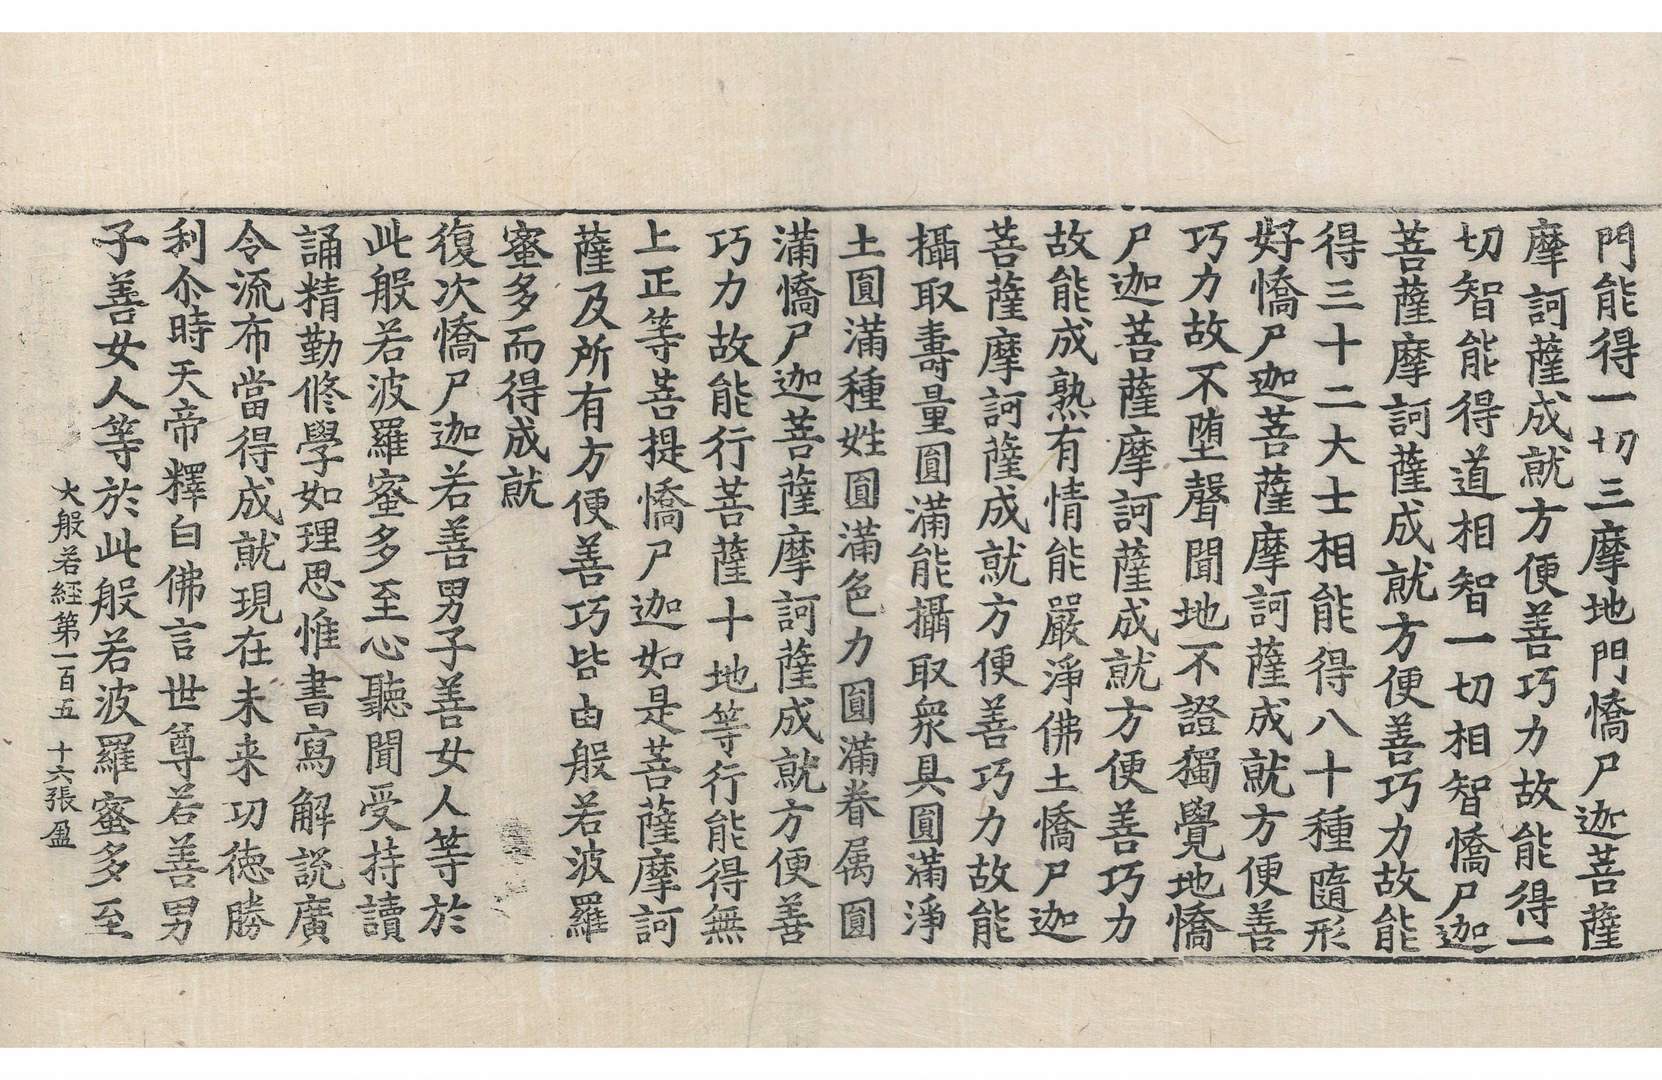 門能得一切三摩地門憍尸迦菩薩
摩訶薩成就方便善巧力故能得一
切智能得道相智一切相智憍尸迦
菩薩摩訶薩成就方便善巧力故能
得三十二大士相能得八十種隨形
好憍尸迦菩薩摩訶薩成就方便善
巧力故不墮聲聞地不證獨覺地憍
尸迦菩薩摩訶薩成就方便善巧力
故能成熟有情能嚴淨佛土憍尸迦
菩薩摩訶薩成就方便善巧力故能
攝取壽量圓滿能攝取衆具圓滿淨
土圓滿種姓圓滿色力圓滿眷属圓
滿憍尸迦菩薩摩訶薩成就方便善
巧力故能行菩薩十地等行能得無
上正等菩提憍尸迦如是菩薩摩訶
薩及所有方便善巧皆由般若波羅
蜜多而得成就
復次憍尸迦若善男子善女人等於
此般若波羅蜜多至心聽聞受持讀
誦精勤修學如理思惟書寫解說廣
令流布當得成就現在未来功德勝
利尒時天帝釋白佛言世尊若善男
子善女人等於此般若波羅蜜多至
大般若經第一百五 十六張 盈